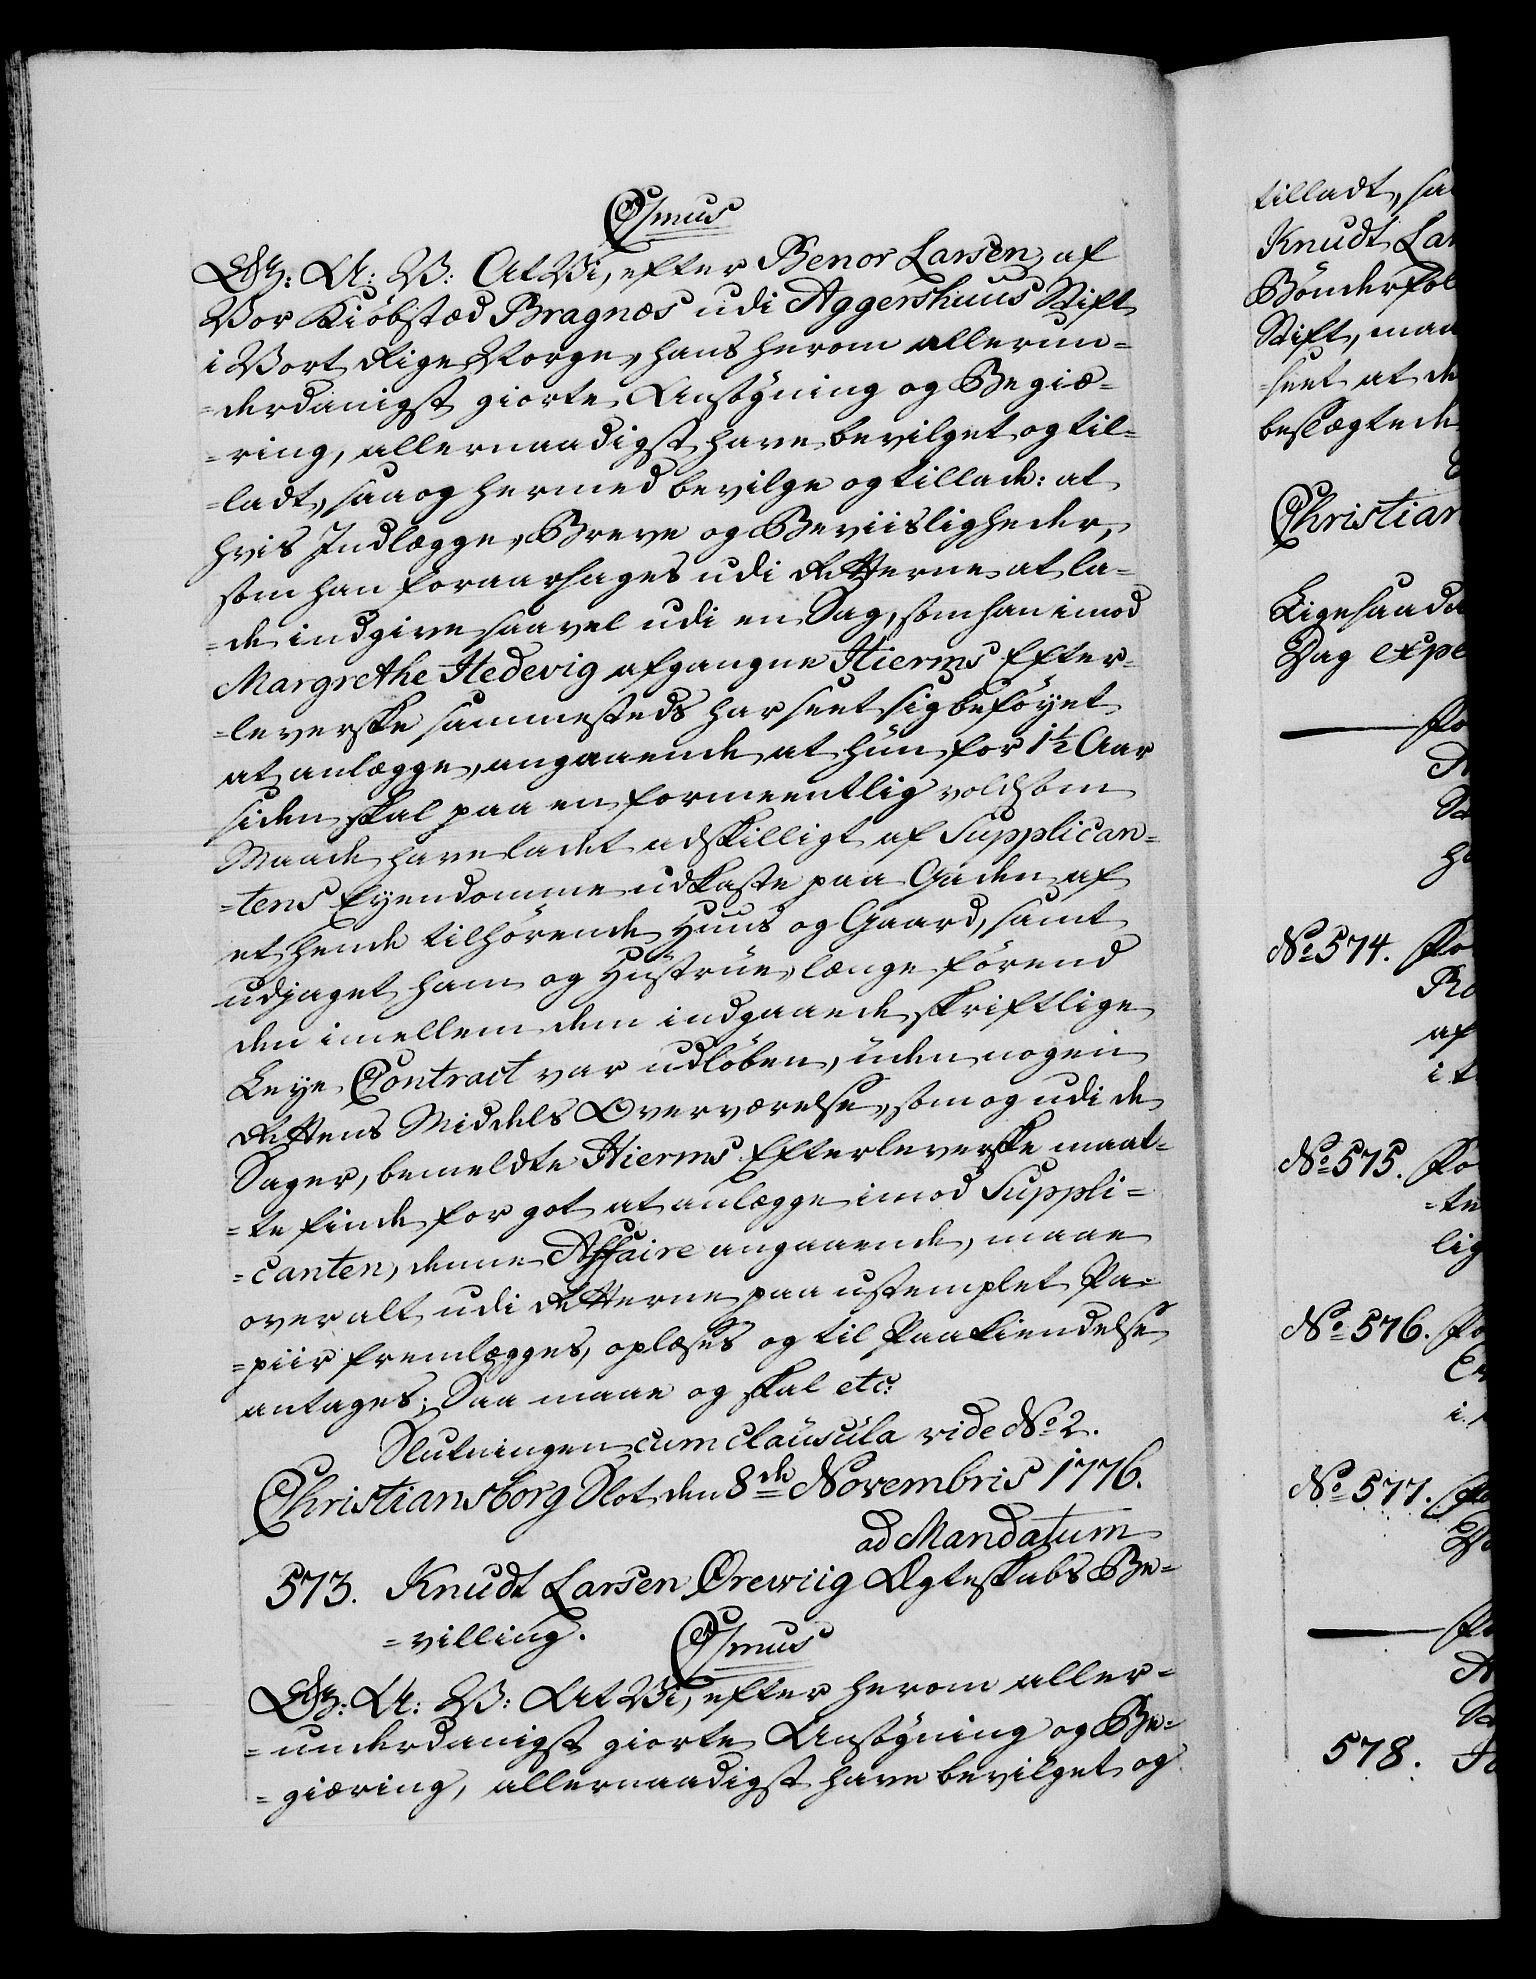 C 7mus
G: A: V: At Vi, efter Benor Larsen af
Vor Kiöbstæd Bragnæs udi Aggershuus Stift
i Vort Rige Norge, hans herom allerun=
=derdanigst giorte Ansögning og Begiæ=
=ring, allernaadigst have bevilget og til=
=ladt, saa og hermed bevilge og tillade: at
hvis Indlægge, Breve og Beviisligheder,
som han foraarsages udi Retterne at la=
=de indgive saavel udi en Sag, som han imod
Margrethe Hedevig afgangne Hierms Efter=
=leverske sammesteds har seet sig beföyet
at anlægge, angaaende at hun for 1½ Aar
siden skal paa en formeentlig voldsom
Maade have ladet adskilligt af Supplican=
=tens Eyendomme udkaste paa Gaden af
et hende tilhörende Huus og Gaard, samt
udjaget ham og Hustrue, længe förend
den imellem dem indgaaede skriftlige
Leye Contract var udlöben, uden nogen
Rettens Middels Overværelse, som og udi de
Sager, bemeldte Hierms Efterleverske maat=
=te finde for got at anlægge imod Suppli=
=canten, denne Affaire angaaende, maae
overalt udi Retterne paa ustemplet Pa=
=piir fremlægges, oplæses og til Paakiendelse
antages; Saa maae og skal etc:
Slutningen cum clausula vide No 2.
Christiansborg Slot den 8de Novembris 1776.
ad Mandatum
573. Knudt Larsen Örewiig Ægteskabs Be=
=villing.
C 7mus
G: A: V: At Vi, efter herom aller=
=underdanigst giorte Ansögning og Be=
=giæring, allernaadigst have bevilget og
tilladt, saa
Knudt Lar
Bönderfol
Stift, maa
=seet at de
beslægtede
Christian
Ligesaada
Dag expe
No 574.
af
No 575.
=te
lig
No 576.
No 577.
578.